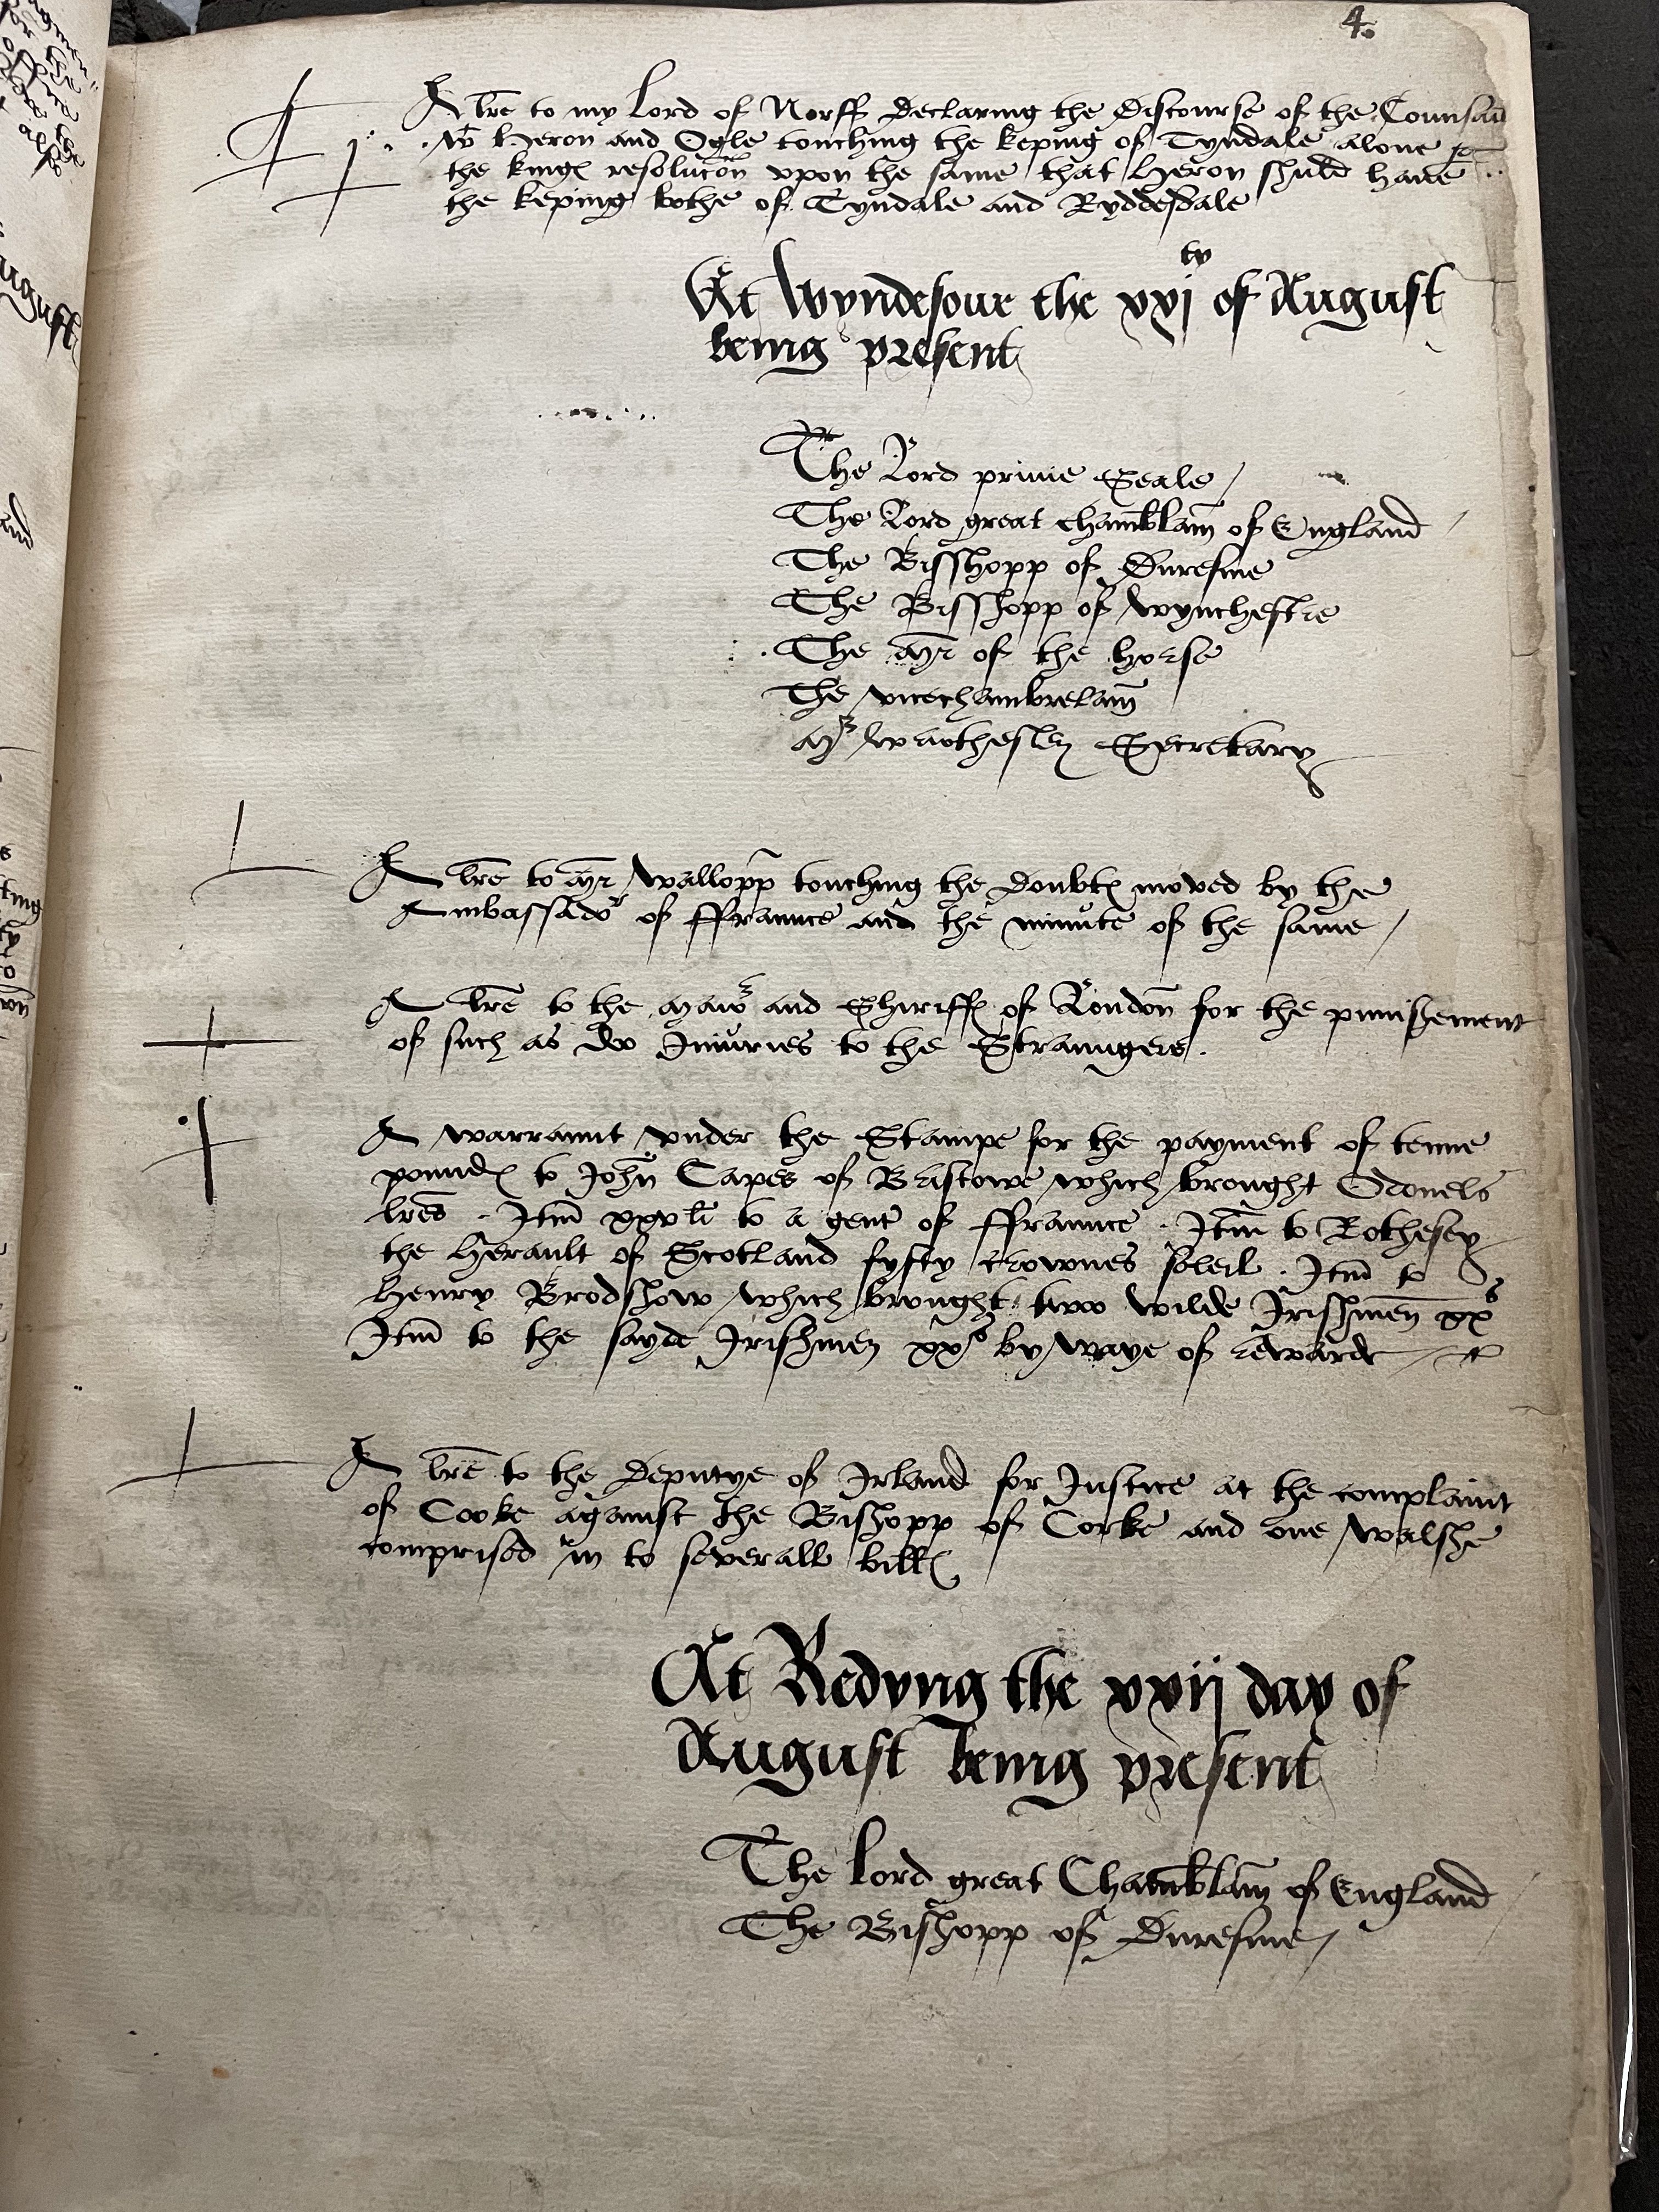 4.
A lre to my Lord of Norff Declaring the Discourse of the Counsail
wt Heron and Ogle touching the keping of Tyndale alone &
the kinges resolucon vpon the same that Heron shuld haue
the keping bothe of Tyndale and Ryddesdale
At Wyndesour the xxjty of August
being present
The Lord priuie Seale
The Lord great chamblain of England
The Bisshopp of Duresme
The Bisshopp of Wynchestre
The Mr of the horse
The vicechambrelain
Mr Wriothesley Secretary
A lre to Mr Wallopp touching the doubtes moved by the
Ambassador of ffraunce and the minute of the same
A lre to the Maior and Shiriffes of London for the punishement
of such as do Iniuries to the Straungers.
A warraunt vnder the Stampe for the payment of tenne
poundes to John Capes of Bristowe which brought Odonels
lres. Itm xxv li to a gent of ffraunce. Itm to Rothesey
the Herault of Scotland fyfty crownes soleil. Itm to
Henry Brodshow which brought two wilde Irishmen xxs
Itm to the sayde Irishmen xxs by waye of rewarde
A lre to the Deputye of Irland for Justice at the complaint
of Cooke against the Bishopp of Corke and one Walshe
comprised in to severall billes
At Redyng the xxij day of
August being present
The Lord great Chamblain of England
The Bishopp of Duresme